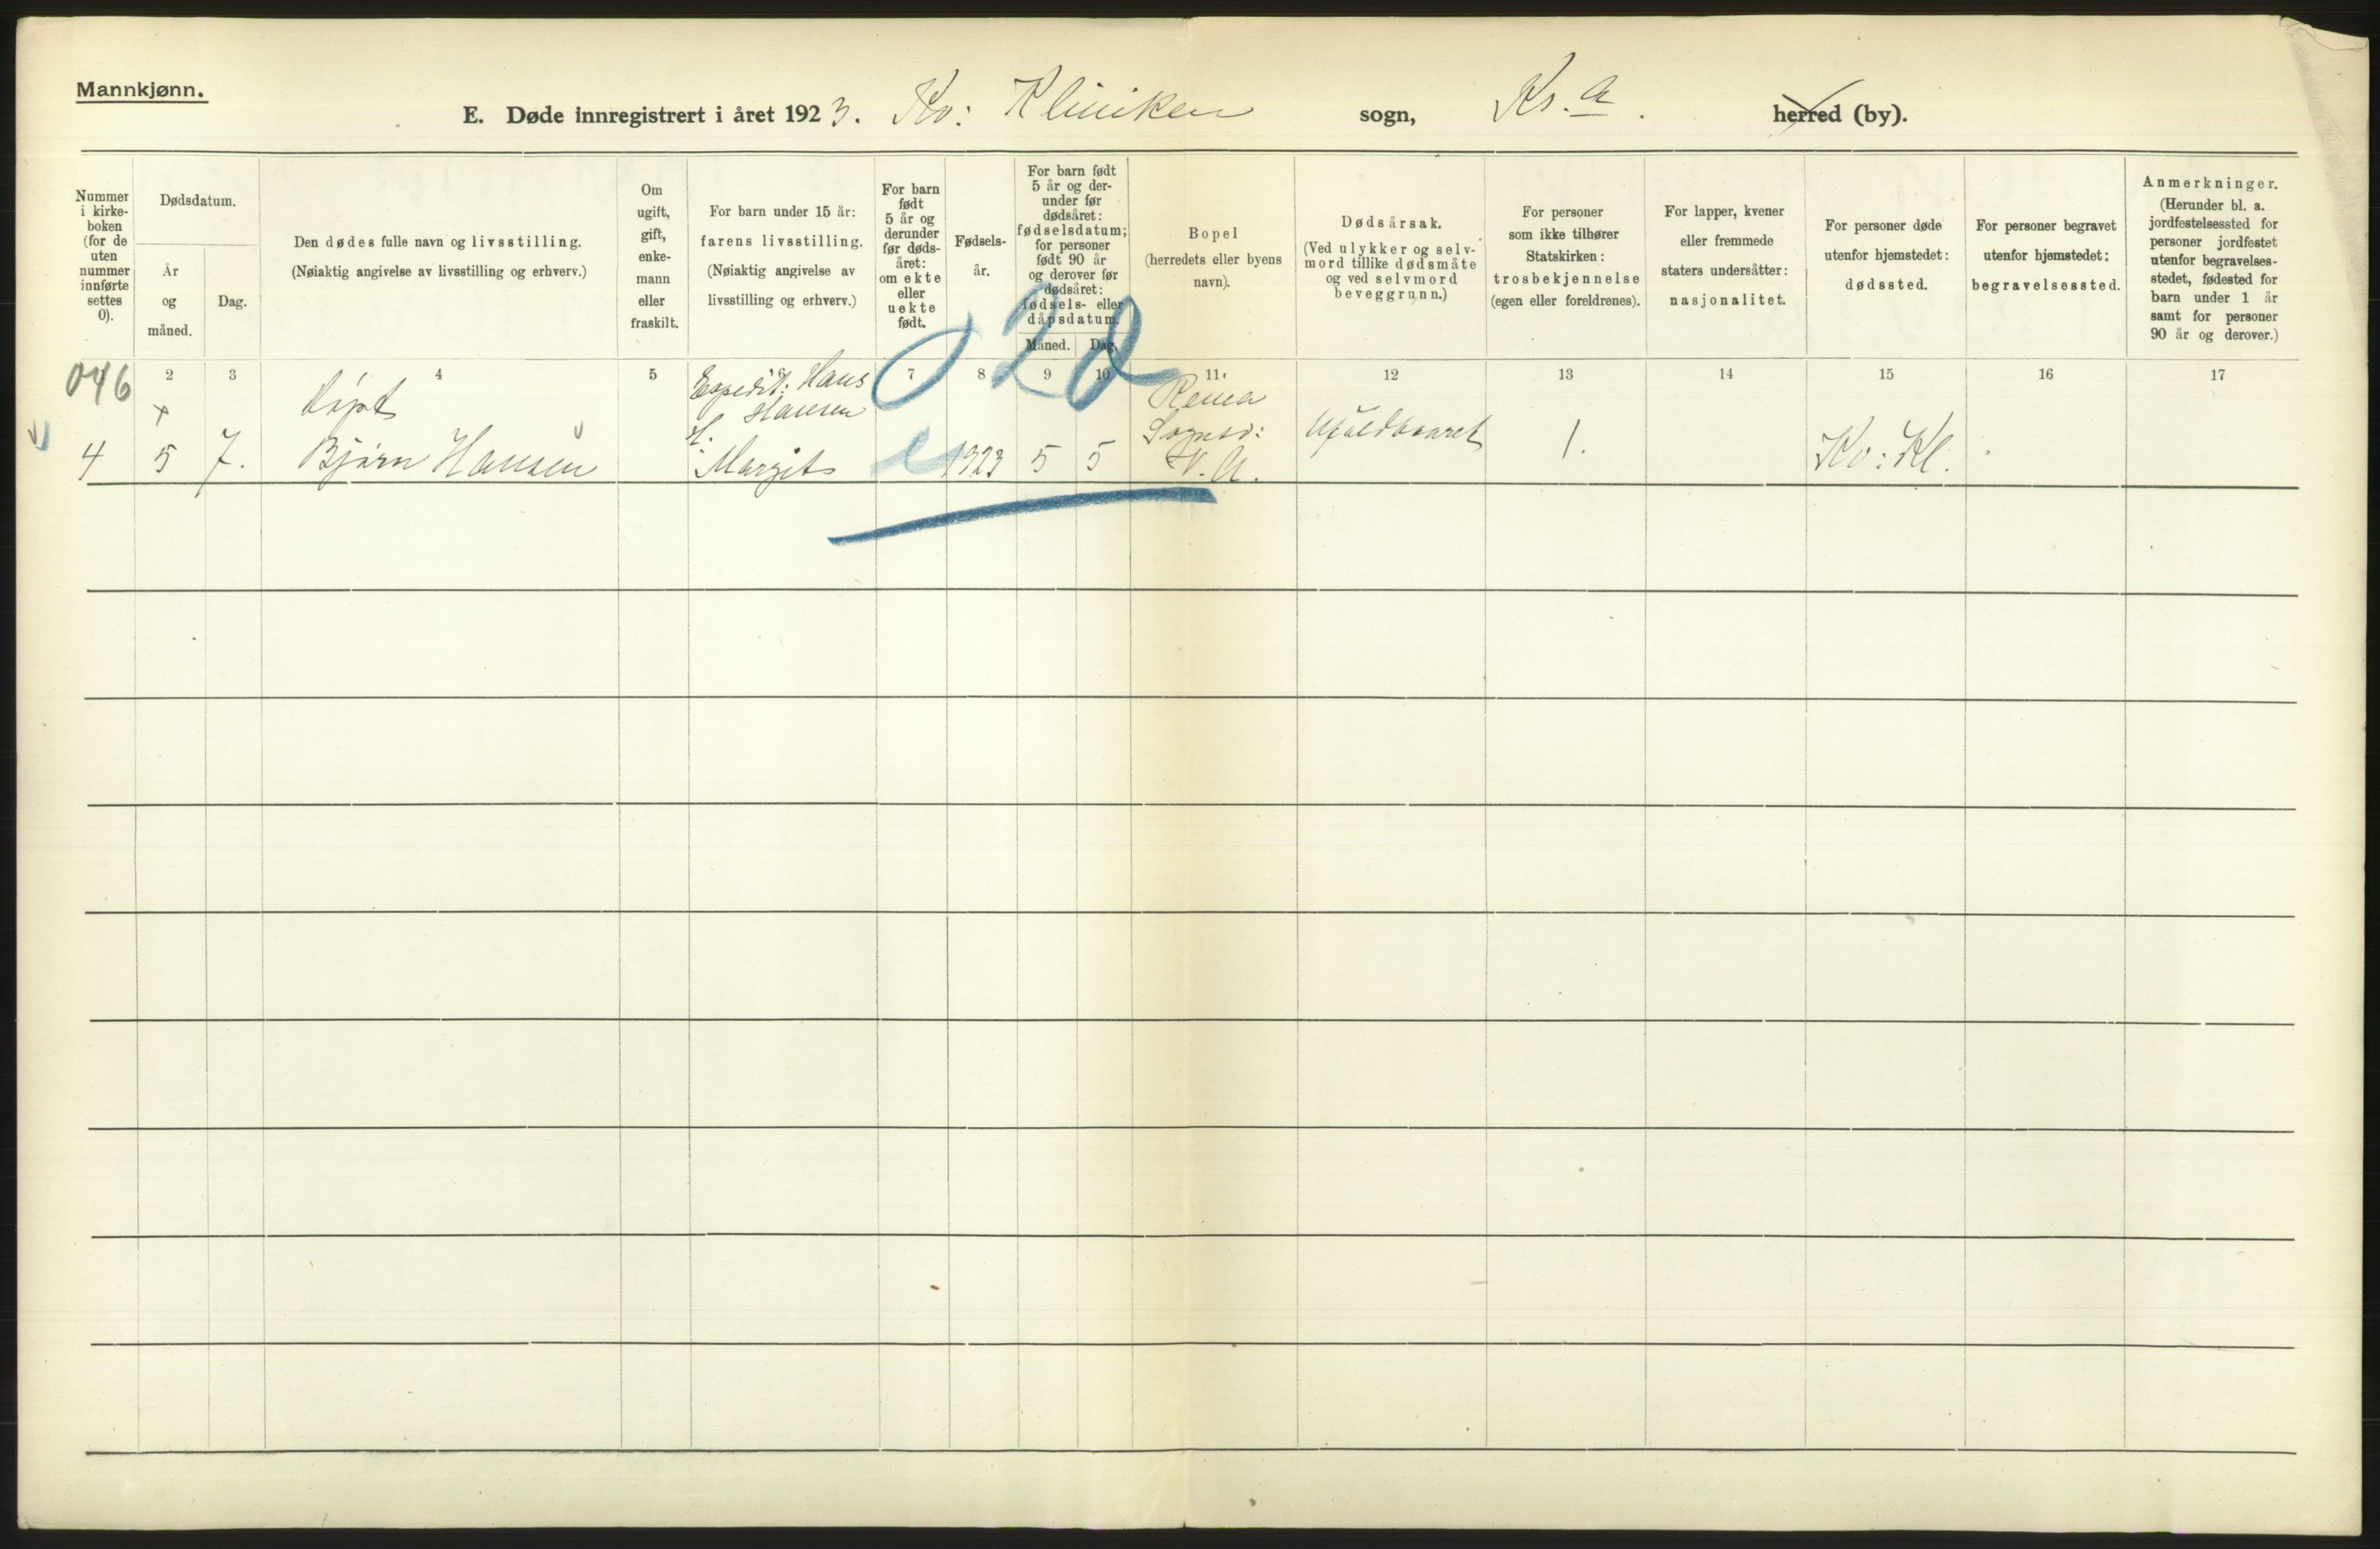 Mannkjønn.
E. Døde innregistrert i året 1923. Kv: Kliniken sogn, Kr.a. herred (by).
Nummer
i kirke-
boken
(for de
uten
nummer
innførte
settes
0).
Dødsdatum.
År
og
måned.
Dag.
Den dødes fulle navn og livsstilling.
(Nøiaktig angivelse av livsstilling og erhverv.)
Om
ugift,
gift,
enke-
mann
eller
fraskilt.
For barn under 15 år:
farens livsstilling.
(Nøiaktig angivelse av
livsstilling og erhverv.)
For barn
født
5 år og
derunder
før døds-
året:
om ekte
eller
uekte
født.
Fødsels-
år.
For barn født
5 år og der-
under før
dødsåret:
fødselsdatum;
for personer
født 90 år
og derover før
dødsåret:
fødsels- eller
dåpsdatum.
Måned.
Dag.
Bopel
(herredets eller byens
navn).
Dødsårsak.
(Ved ulykker og selv-
mord tillike dødsmåte
og ved selvmord
beveggrunn.)
For personer
som ikke tilhører
Statskirken:
trosbekjennelse
(egen eller foreldrenes).
For lapper, kvener
eller fremmede
staters undersåtter:
nasjonalitet.
For personer døde
utenfor hjemstedet:
dødssted.
For personer begravet
utenfor hjemstedet:
begravelsessted.
Anmerkninger.
(Herunder bl. a.
jordfestelsessted for
personer jordfestet
utenfor begravelses-
stedet, fødested for
barn under 1 år
samt for personer
90 år og derover.)
2 3 4 5 7 8 9 10 11 12 13 14 15 16 17
046
020
+
Døpt
Expedit: Hans
Hansen
4 5 7. Bjørn Hansen
Margit
e 1923 5 5
V. A.
Ufuldbaaret
1.
Kv: Kl.